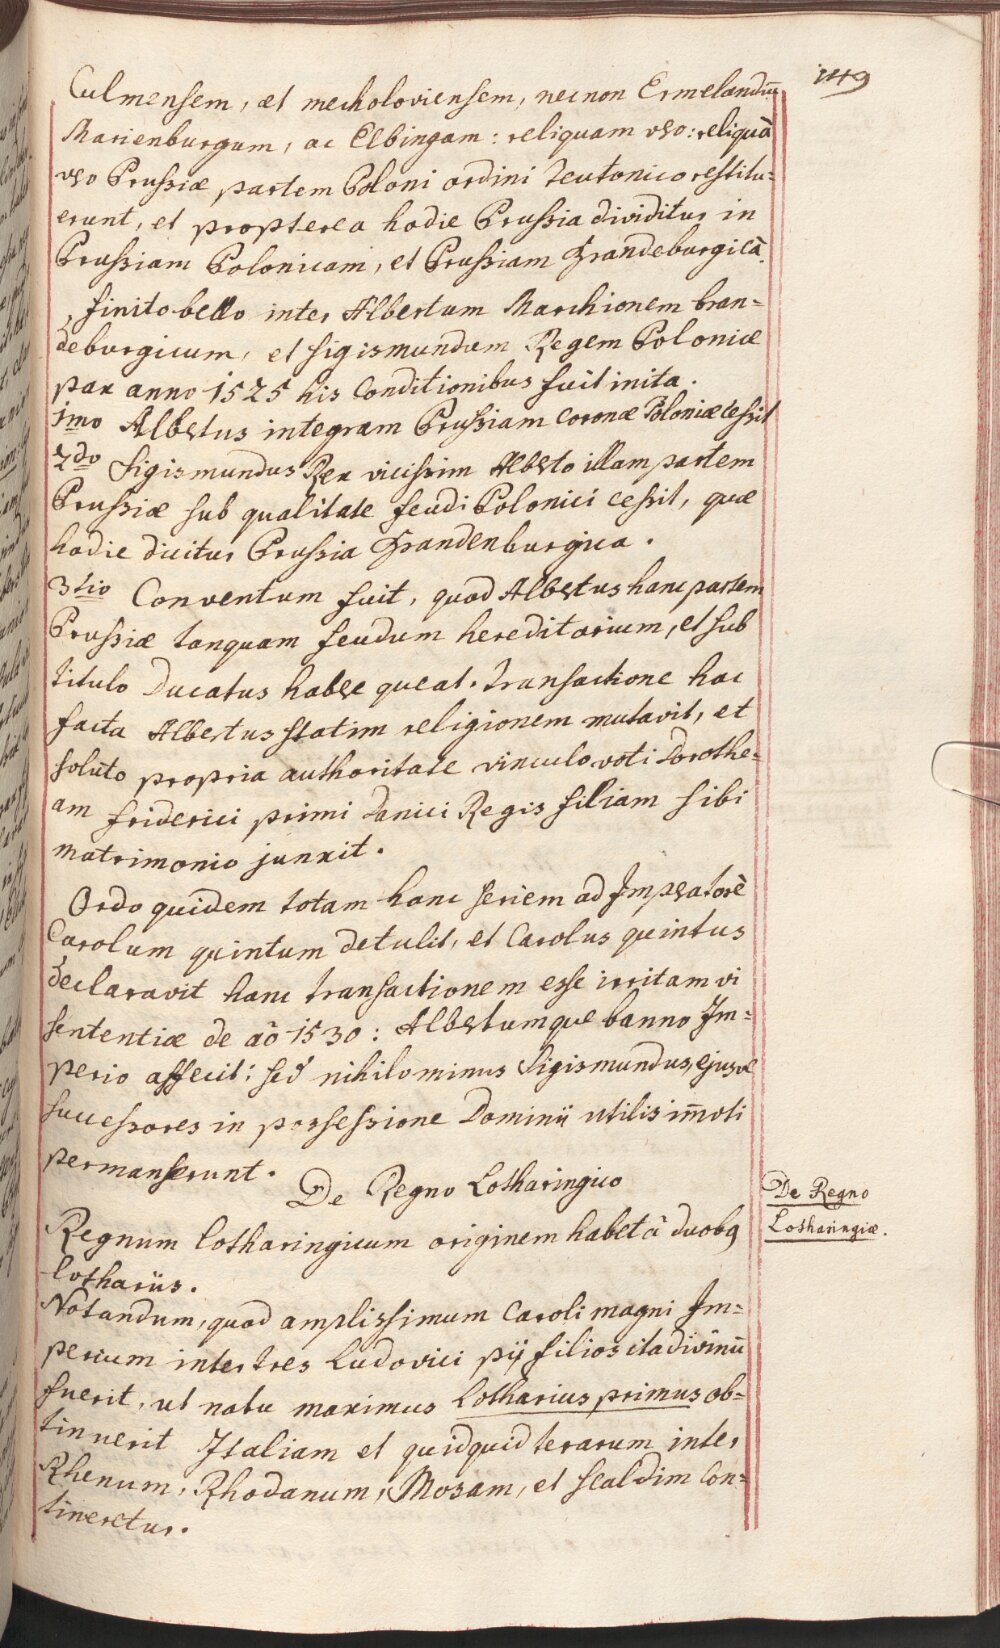 149
Culmensem, et mecholoviensem, necnon Ermelandiū
Marienburgum, ac Elbingam: reliquam vso: reliquā
vso Prussiæ partem Poloni ordini teutonico restitu=
erunt, et propterea hodie Prussia dividitur in
Prussiam Polonicam, et Prussiam Brandeburgicā.
finito bello inter Albertum Marchionem bran=
deburgicum, et sigismundum Regem Poloniæ
pax anno 1525 his Conditionibus fuit inita.
1mo Albertus integram Prussiam Coronæ Poloniæ cessit
2do Sigismundus Rex vicissim Alberto illam partem
Prussiæ sub qualitate feudi Polonici cessit, quæ
hodie dicitur Prussia Brandenburgica.
3tio Conventum fuit, quod Albertus hanc partem
Prussiæ tanquam feudum hereditarium, et sub
titulo Ducatus habere queat. transactione hac
facta Albertus statim religionem mutavit, et
soluto propria authoritate vinculo voti Dorothe=
am friderici primi Danici Regis filiam sibi
matrimonio junxit.
Ordo quidem totam hanc seriem ad Imperatorē
Carolum quintum detulit, et Carolus quintus
declaravit hanc transactionem esse irritam vi
sententiæ de aō 1530: Albertumque banno Im=
perio affecit: sed nihilominus Sigismundus, ejusq̃
successores in possessione Dominii utilis im̄oti
permanserunt.
De Regno Lotharingico
De Regno
Lotharingiæ.
Regnum lotharingicum originem habet à duobq
lothariis.
Notandum, quod amplissimum Caroli magni Im=
perium inter tres Ludovici pij filios ita divinū
fuerit, ut natu maximus Lotharius primus ob=
tinuerit Italiam et quidquid terarum inter
Rhenum, Rhodanum, Mosam, et scaldim Con=
tineretur.